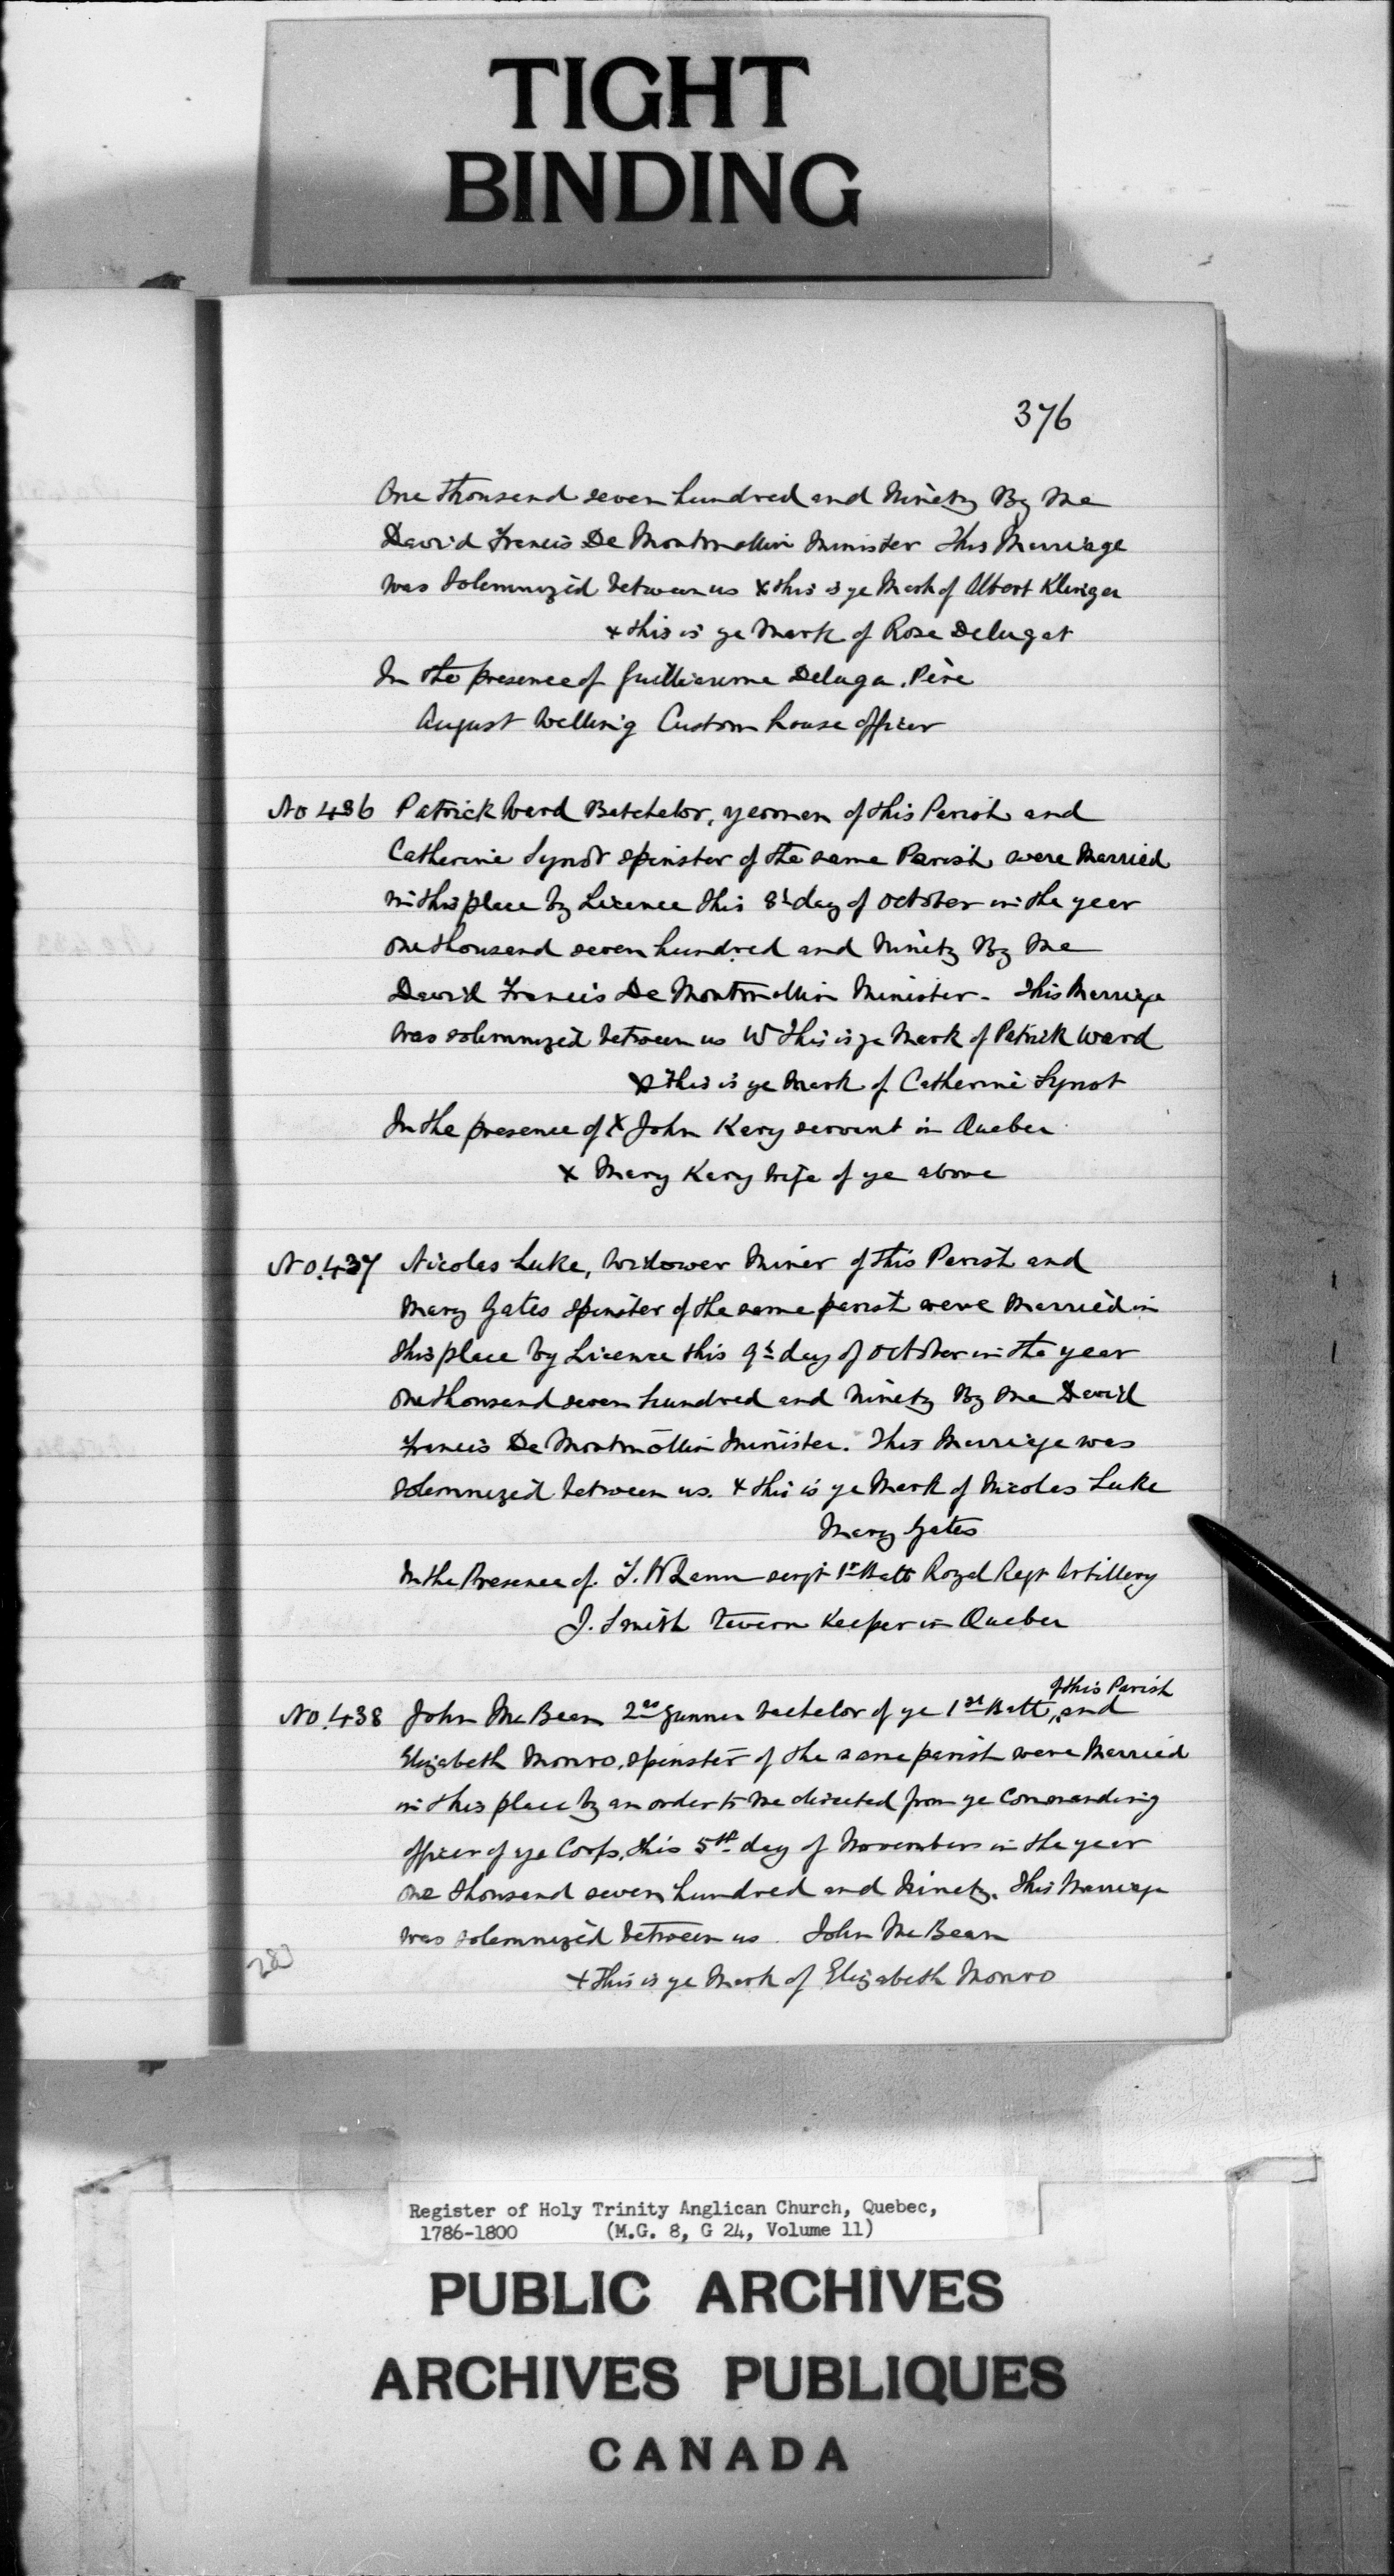 TIGHT
BINDING
376
One thousand seven hundred and Ninety By Me
David Francis De Montmollin Minister This Marriage
was solemnized between us x this is ye Mark of Albert Klinger
x this is ye Mark of Rose Delugat
In the presence of Guilliaume Deluga, Père
August Welling Custom house officer
No 436 Patrick Ward Batchelor, yeoman of this Parish and
Catherine Synot spinster of the same Parish were Married
in this place by Licence this 8th day of October in the year
one thousand seven hundred and Ninety By Me
David Francis De Montmollin Minister. This Marriage
was solemnized between us W This is ye Mark of Patrick Ward
x This is ye Mark of Catherine Synot
In the presence of x John Kery servant in Quebec
x Mary Kery wife of ye above
No. 437 Nicolas Luke, Widower Miner of this Parish and
Mary Gates Spinster of the same parish were Married in
this place by Licence this 9th day of October in the year
one thousand seven hundred and Ninety By Me David
Francis De Montmollin Minister. This Marriage was
solemnized between us. x this is ye Mark of Nicolas Luke
Mary Gates
In the Presence of sergt 1st Batt Royal Regt Artillery
J. Smith Tavern Keeper in Quebec
of this Parish
No. 438 John McBean 2nd Gunner bachelor of ye 1st Batt, and
Elizabeth Monro, spinster of the same parish were Married
in this place by an order to me directed from ye Commanding
officer of ye Corps, this 5th day of November in the year
one thousand seven hundred and Ninety. This Marriage
was solemnized between us John McBean
x This is ye Mark of Elizabeth Monro
283
Register of Holy Trinity Anglican Church, Quebec,
1786-1800 (M.G. 8, G 24, Volume 11)
PUBLIC ARCHIVES
ARCHIVES PUBLIQUES
CANADA